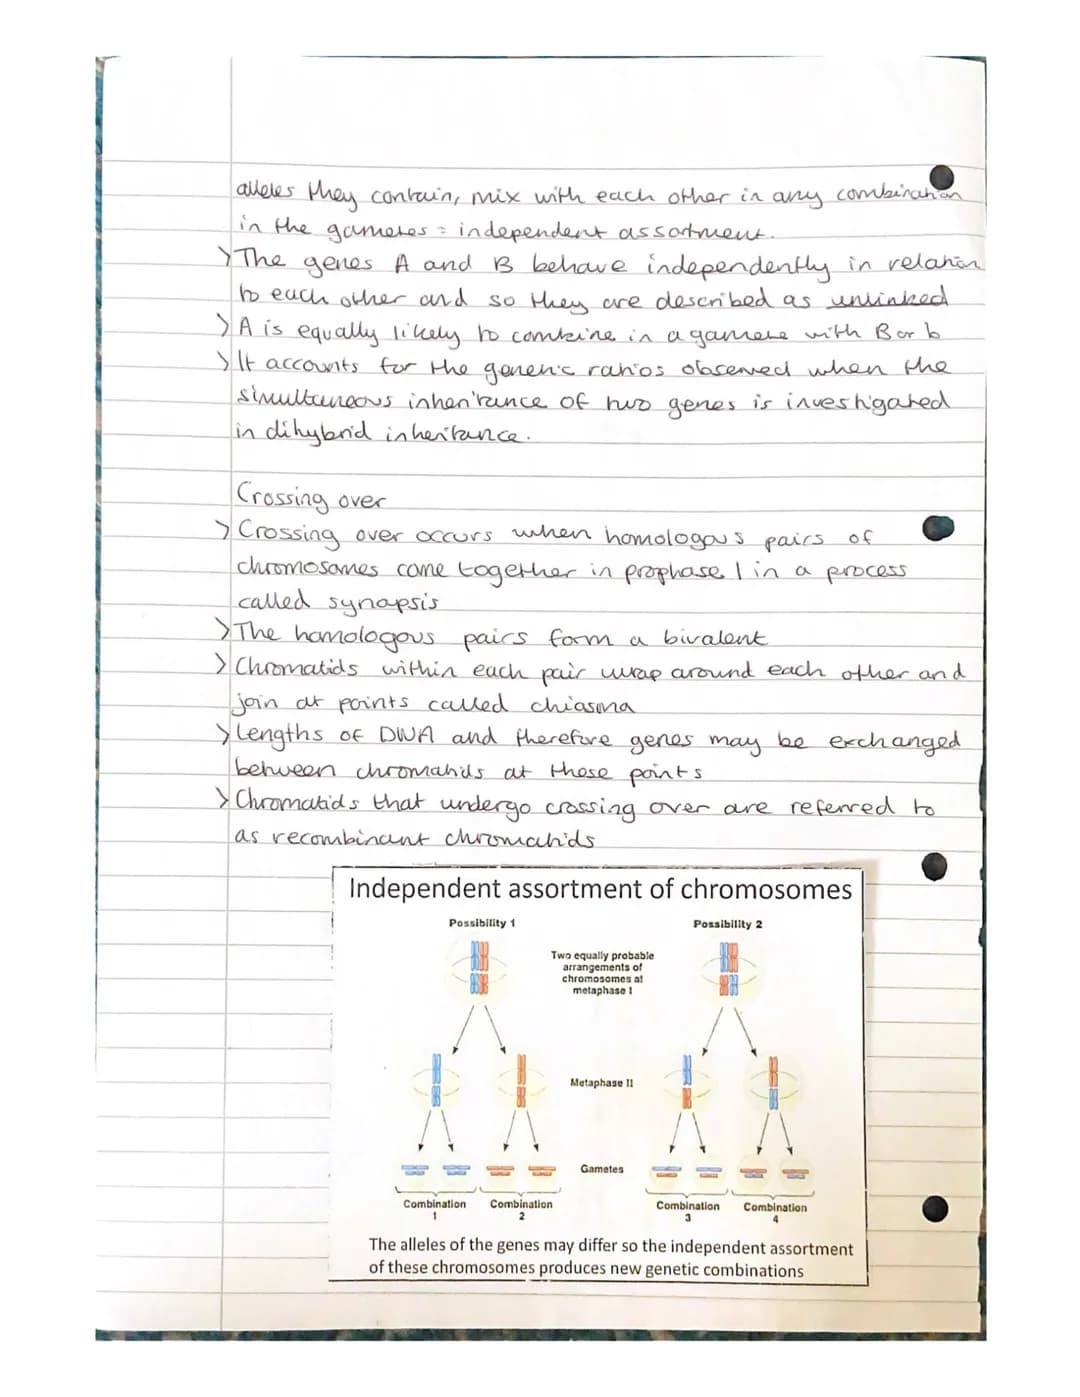 alleles they contain, mix with each other in any combination
in the gametes = independent assortment.
> The genes A and B behave independently in relation
to each other and so they are described as unlinked
> A is equally likely to combine in a gamete with B or b
> It accounts for the genetic ratios observed when the
simultaneous inheritance of two genes is investigated
in dihybrid inheritance.
Crossing over
> Crossing over occurs when homologous pairs of
chromosomes come together in prophase 1 in a process
called synapsis
> The homologous pairs form a bivalent
> Chromatids within each pair wrap around each other and
join at points called chiasma
> Lengths of DNA and therefore genes may be exchanged
between chromatids at these points
> Chromatids that undergo crossing over are referred to
as recombinant chromatids
Independent assortment of chromosomes
Possibility 1
Possibility 2
Two equally probable
arrangements of
chromosomes at
metaphase I
Metaphase II
Gametes
Combination
1
Combination
2
Combination
3
Combination
4
The alleles of the genes may differ so the independent assortment
of these chromosomes produces new genetic combinations